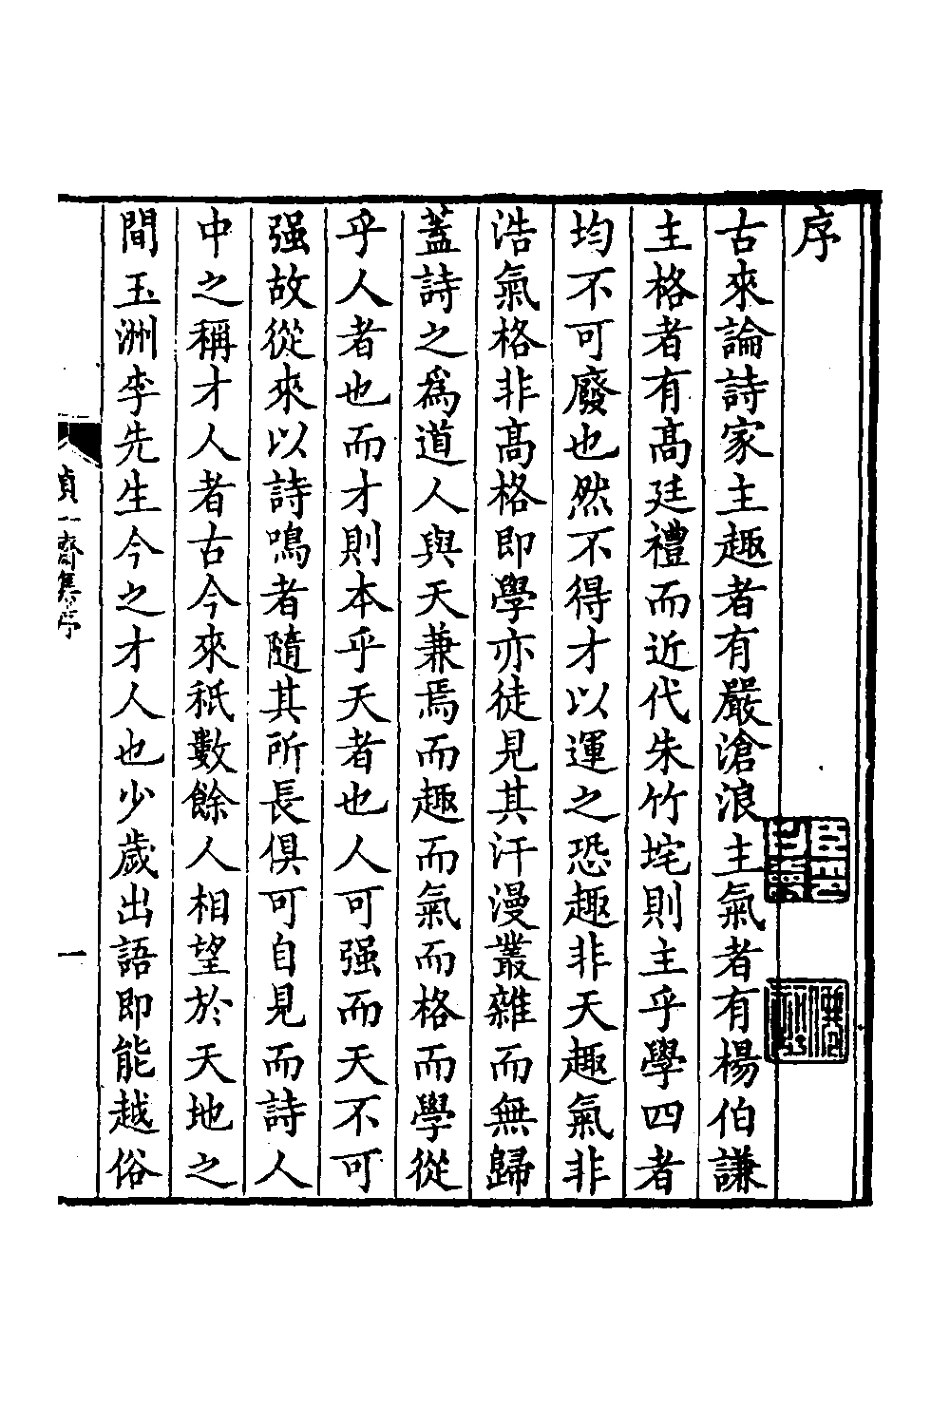 序
古來論詩家主趣者有嚴滄浪主氣者有楊伯謙
主格者有髙廷禮而近代朱竹垞則主乎學四者
均不可廢也然不得才以運之恐趣非天趣氣非
浩氣格非髙格即學亦徒見其汗漫叢雜而無歸
蓋詩之爲道人與天兼焉而趣而氣而格而學從
乎人者也而才則本乎天者也人可强而天不可
强故從來以詩鳴者隨其所長俱可自見而詩人
中之稱才人者古今來秪數餘人相望於天地之
間玉洲李先生今之才人也少歲出語即能越俗
貞一齋集序
一